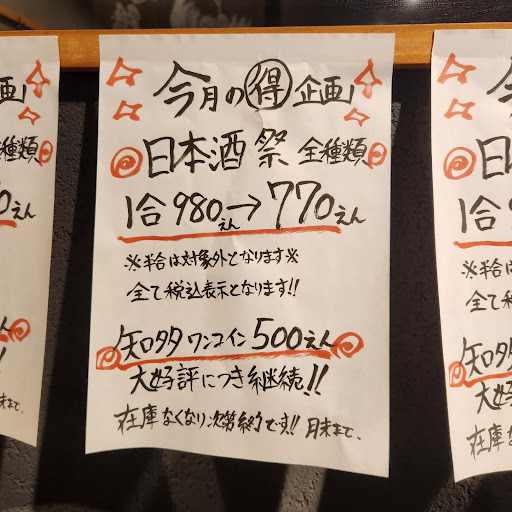 今月の得企画
日本酒祭 全種類
1合 980えん→770えん
※半合は対象外となります※
全て税込表示となります!!
知多 ワンコイン 500えん
大好評につき継続!!
在庫なくなり次第終了です!! 月末まで、
画
種類
0えん
えん
!!
月末まで、
今
日
1合 9
※半合は
全て税込
知多
大好
在庫な